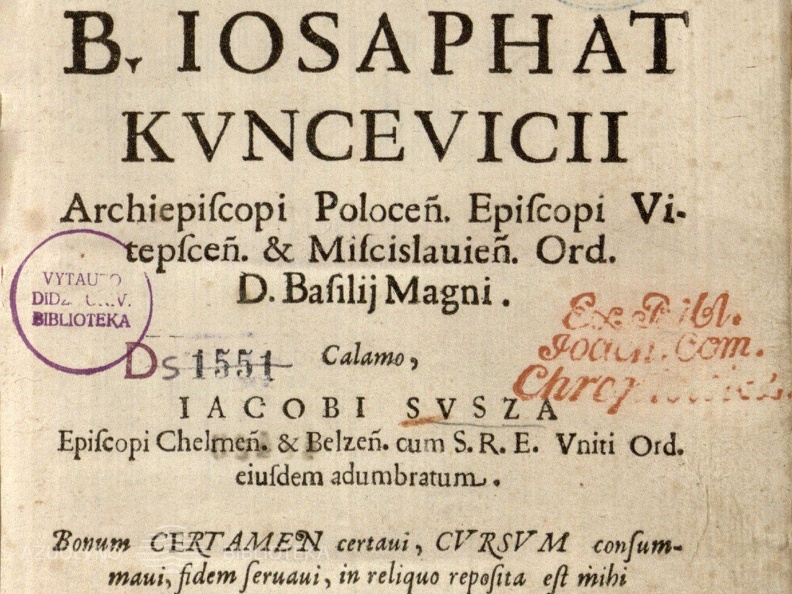 B. IOSAPHAT
KVNCEVICII
Archiepiſcopi Poloceñ. Epiſcopi Vi-
tepſceñ. & Miſcislauieñ. Ord.
D. Baſilij Magni.
VYTAUTO
BIBLIOTEKA
Ds 1551
Calamo,
Ex Bibl.
Ioach. Com.
IACOBI SVSZA
Epiſcopi Chelmeñ. & Belzeñ. cum S. R. E. Vniti Ord.
eiuſdem adumbratum.
Bonum CERTAMEN certaui, CVRSVM conſum-
maui, fidem ſeruaui, in reliquo repoſita eſt mihi